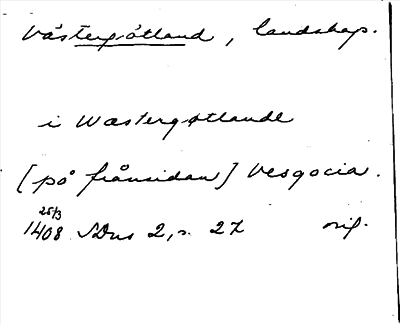 Västergötland, landskap.
i Wæstergøtlandh
[på frånsidan] Vesgocia.
25/3
1408 SDns 2, s. 27 orig.